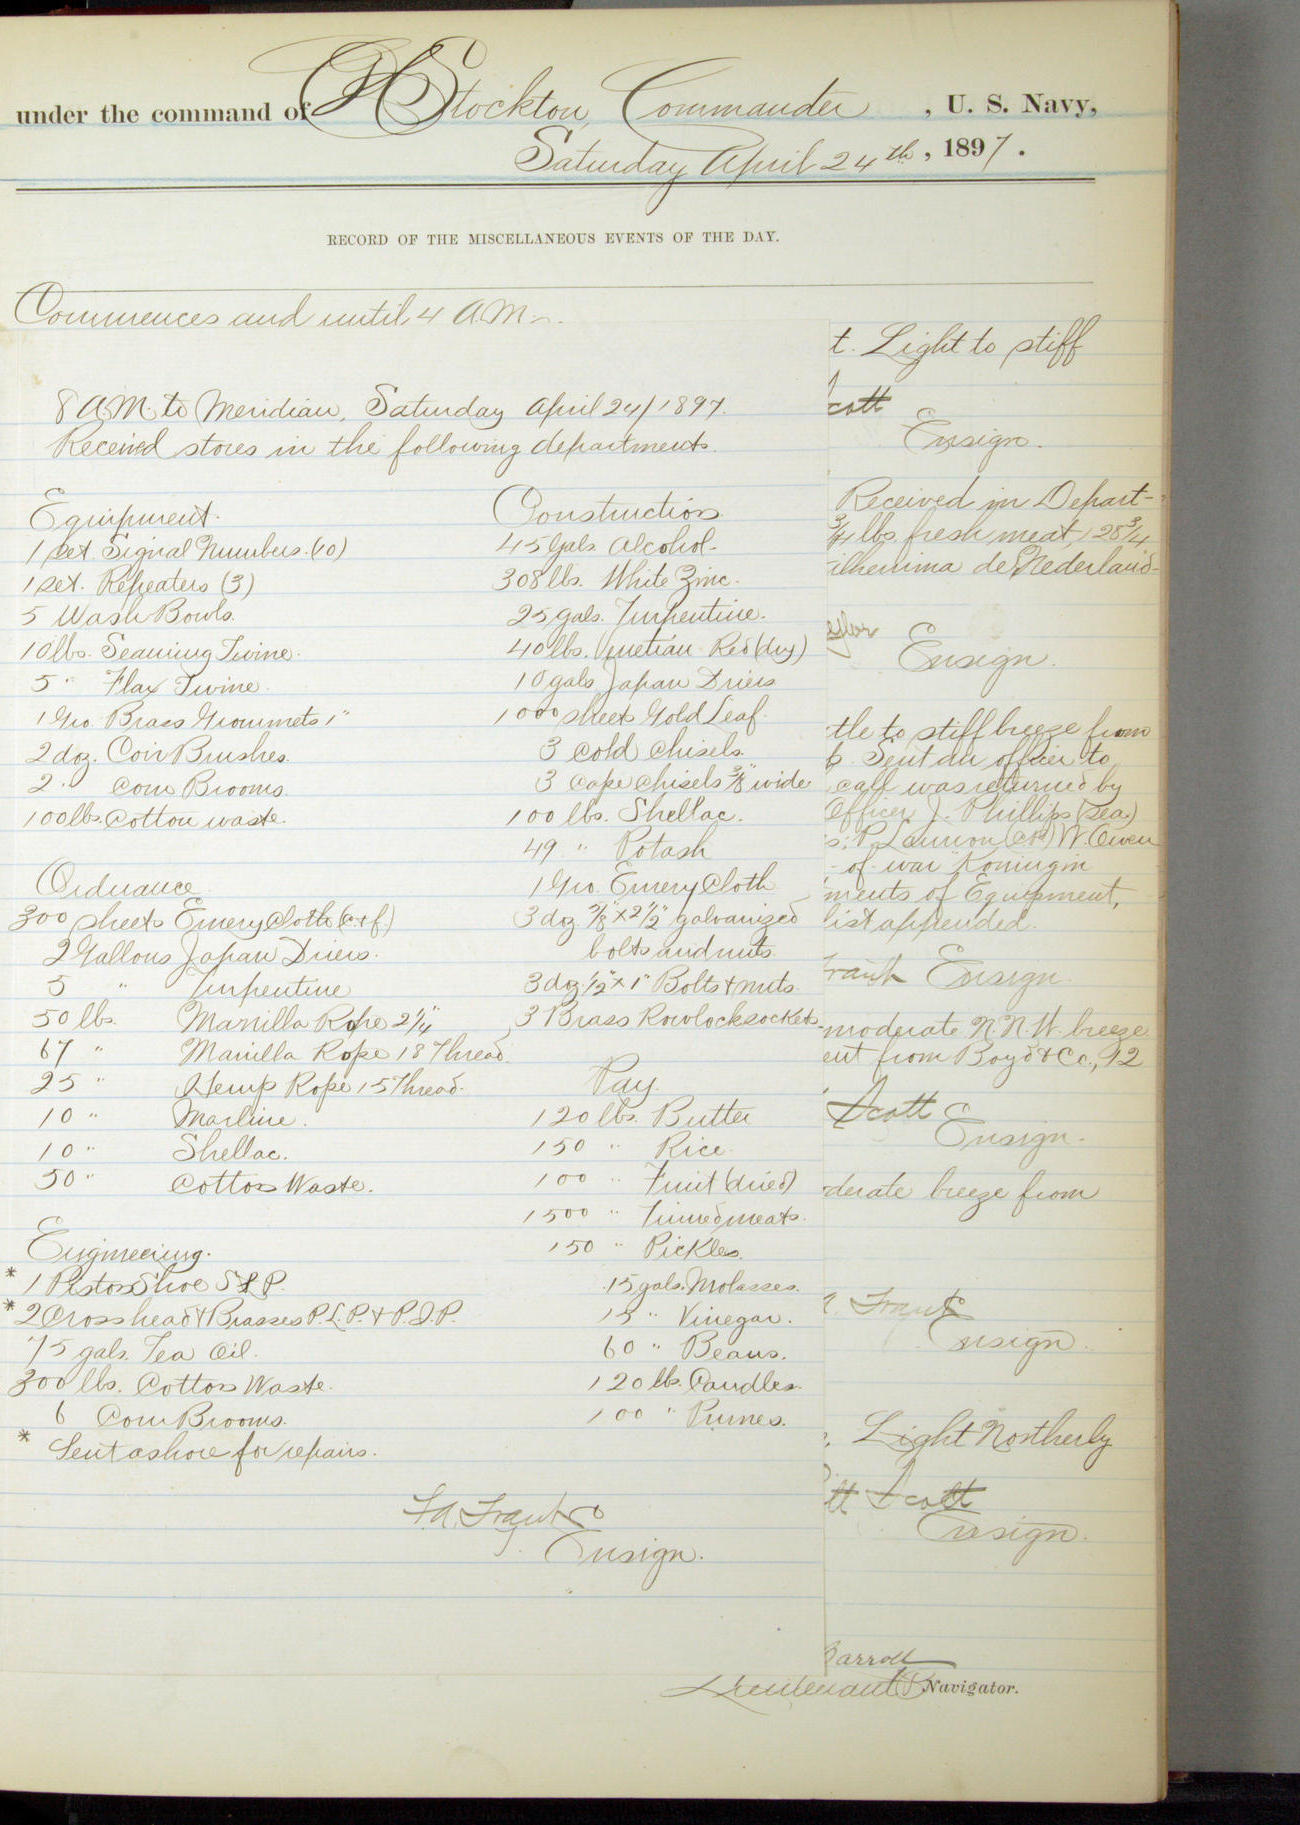 under the command of C H Stockton, Commander, U. S. Navy,
Saturday April 24th, 1897.
RECORD OF THE MISCELLANEOUS EVENTS OF THE DAY.
Commences and until 4 A.M.
8 A.M. to Meridian, Saturday April 24/1897.
Received stores in the following departments.
Equipment.
1 set Signal Numbers. (10)
1 set. Repeaters (3)
5 Wash Bowls.
10 lbs. Seaming Twine.
5 " Flax Twine.
1 Gro. Brass Grommets 1"
2 doz. Coir Brushes.
2 " Corn Brooms.
100 lbs. Cotton waste.
Ordnance
300 sheets Emery Cloth (c+f)
2 Gallons Japan Driers.
5 " Turpentine
50 lbs. Manilla Rope 2 1/4"
67 " Manilla Rope 18 Thread.
25 " Hemp Rope 15 Thread.
10 " Marline.
10 " Shellac.
50 " Cotton Waste.
Engineering.
* 1 Piston Shoe S L P.
* 2 Crosshead & Brasses P.L.P. & P.I.P.
75 gals. Tea Oil.
300 lbs. Cotton Waste.
6 Corn Brooms.
* Sent ashore for repairs.
Construction
45 Gals. Alcohol.
308 lbs. White Zinc.
25 gals. Turpentine.
40 lbs. Venetian Red (dry)
10 gals Japan Driers
1000 sheets Gold Leaf.
3 cold chisels.
3 cape chisels 3/8" wide
100 lbs. Shellac.
49 " Potash
1 Gro. Emery Cloth
3 doz 5/8" x 2 1/2" galvanized
bolts and nuts
3 doz 1/2" x 1" Bolts & nuts.
3 Brass Rowlock sockets.
Pay.
120 lbs. Butter
150 " Rice
100 " Fruit (dried)
1500 " Tinned meats.
150 " Pickles.
15 gals. Molasses.
15 " Vinegar.
60 " Beans.
120 lbs. Candles.
100 " Prunes.
Ensign.
t. Light to stiff
cott
Ensign.
Received in Depart-
3/4 lbs. fresh meat, 128 3/4
ilhemina de Nederland-
Ensign.
tle to stiff breeze from
Sent an officer to
call was returned by
Officer J. Phillips (sea.)
s; P. Lannon W. Owen
of-war "Koningin
ments of Equipment,
list appended.
Frank Ensign
moderate N.N.W. breeze
ent from Boyd & Co., 12
Scott
Ensign.
derate breeze from
Ensign.
Light Northerly
tt Scott
Ensign.
Carroll
Lieutenant & Navigator.